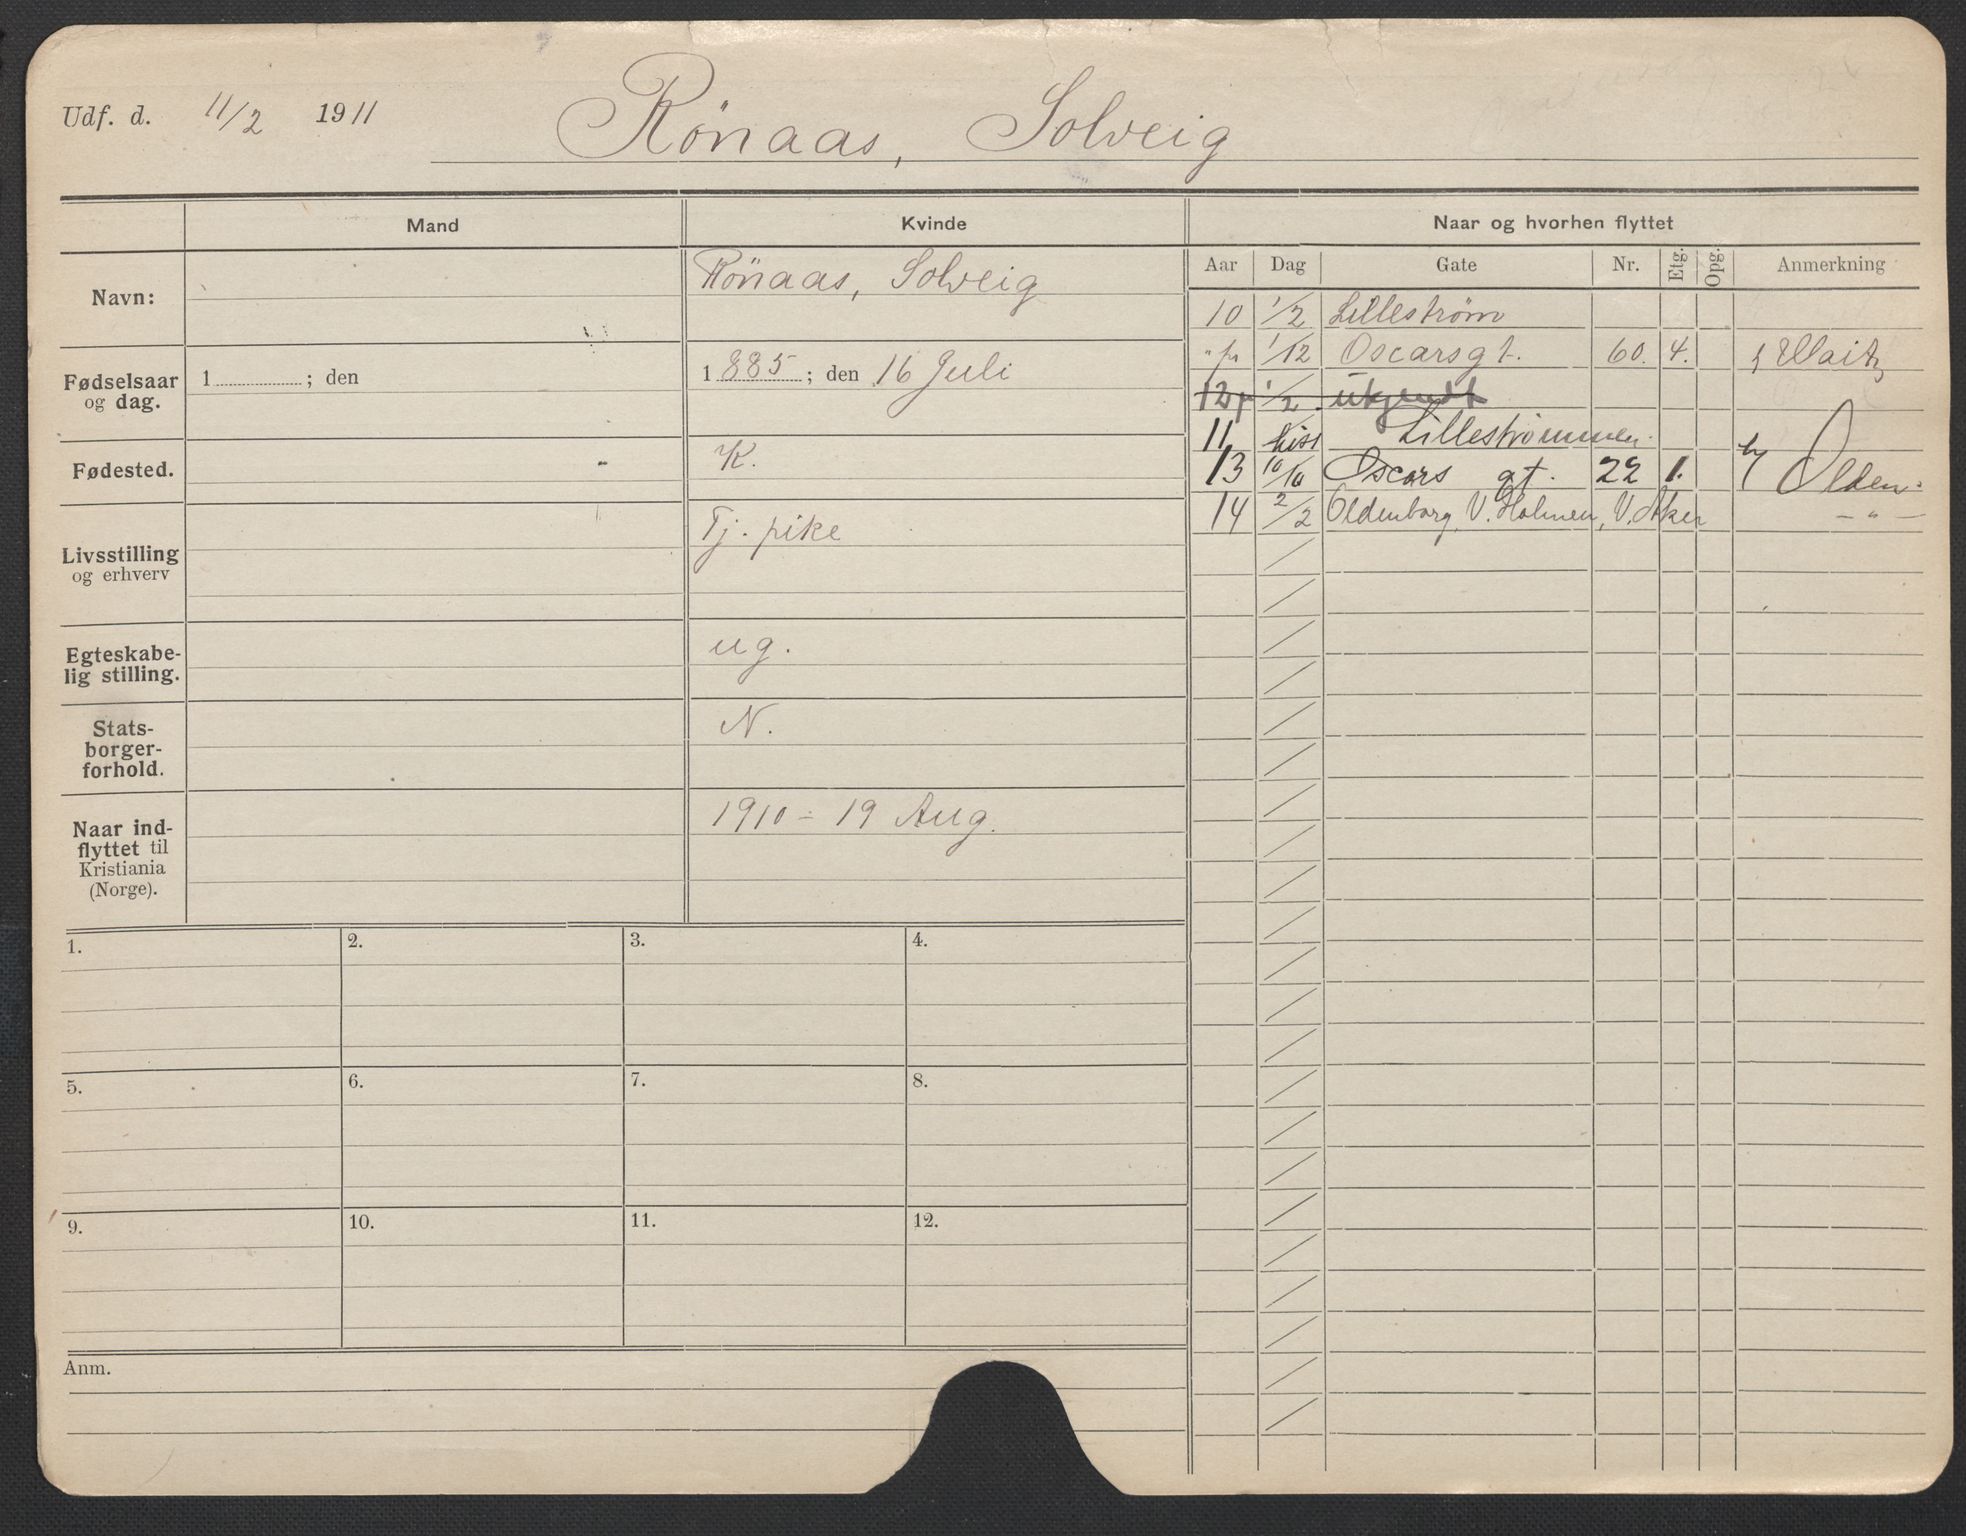 Udf. d. 11/2 1911 Rönaas, Solveig
Mand Kvinde Naar og hvorhen flyttet
Aar Dag Gate Nr. Etg. Opg. Anmerkning
Navn: Rönaas, Solveig
Fødselsaar og dag. 1 ; den 1885 ; den 16 Juli
Fødested. K.
Livsstilling og erhverv Tj. pike
Egteskabe-
lig stilling. ug.
Stats-
borger-
forhold. N.
Naar ind-
flyttet til
Kristiania
(Norge). 1910 - 19 Aug.
10 1/2 Lillestrøm
" 1/12 Oscarsgt. 60. 4. Waitz
12 1/2 utkjendt
11 hist Lillestrømmen.
13 10/10 Oscars gt. 22 1. h/ Olden.
14 2/2 Oldenborg, V. Holmen, V. Aker - " -
1. 2. 3. 4.
5. 6. 7. 8.
9. 10. 11. 12.
Anm.